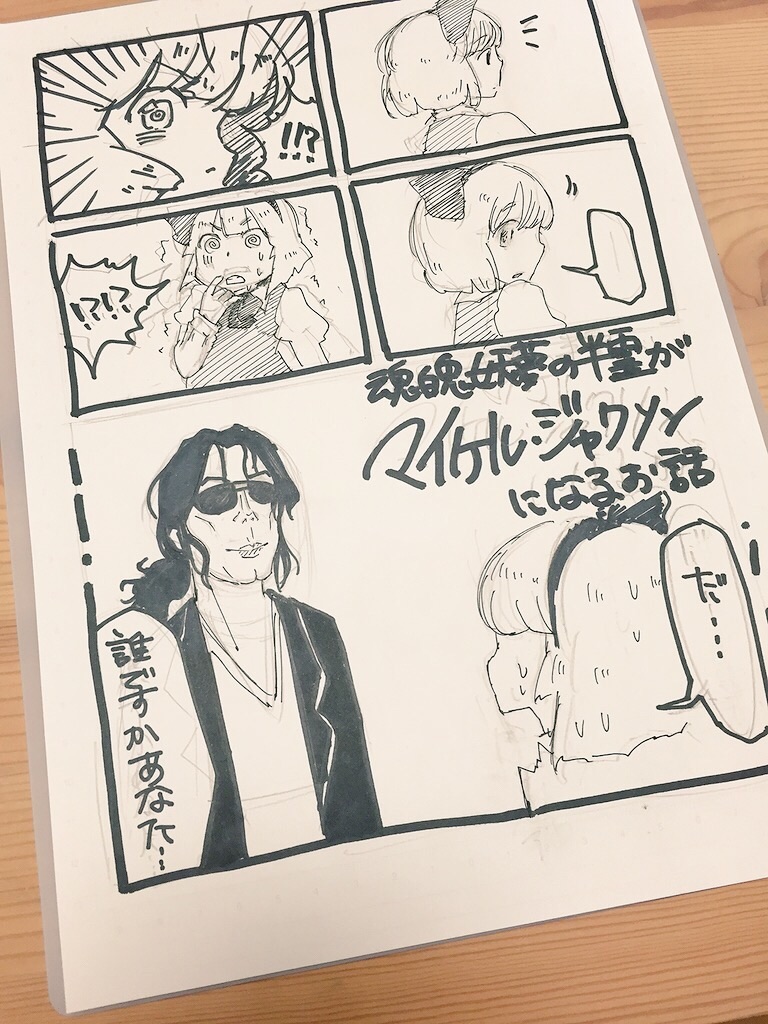 !!?
!?!?
魂魄妖夢の半霊が
マイケル・ジャクソン
になるお話
だ…
誰ですかあなた…